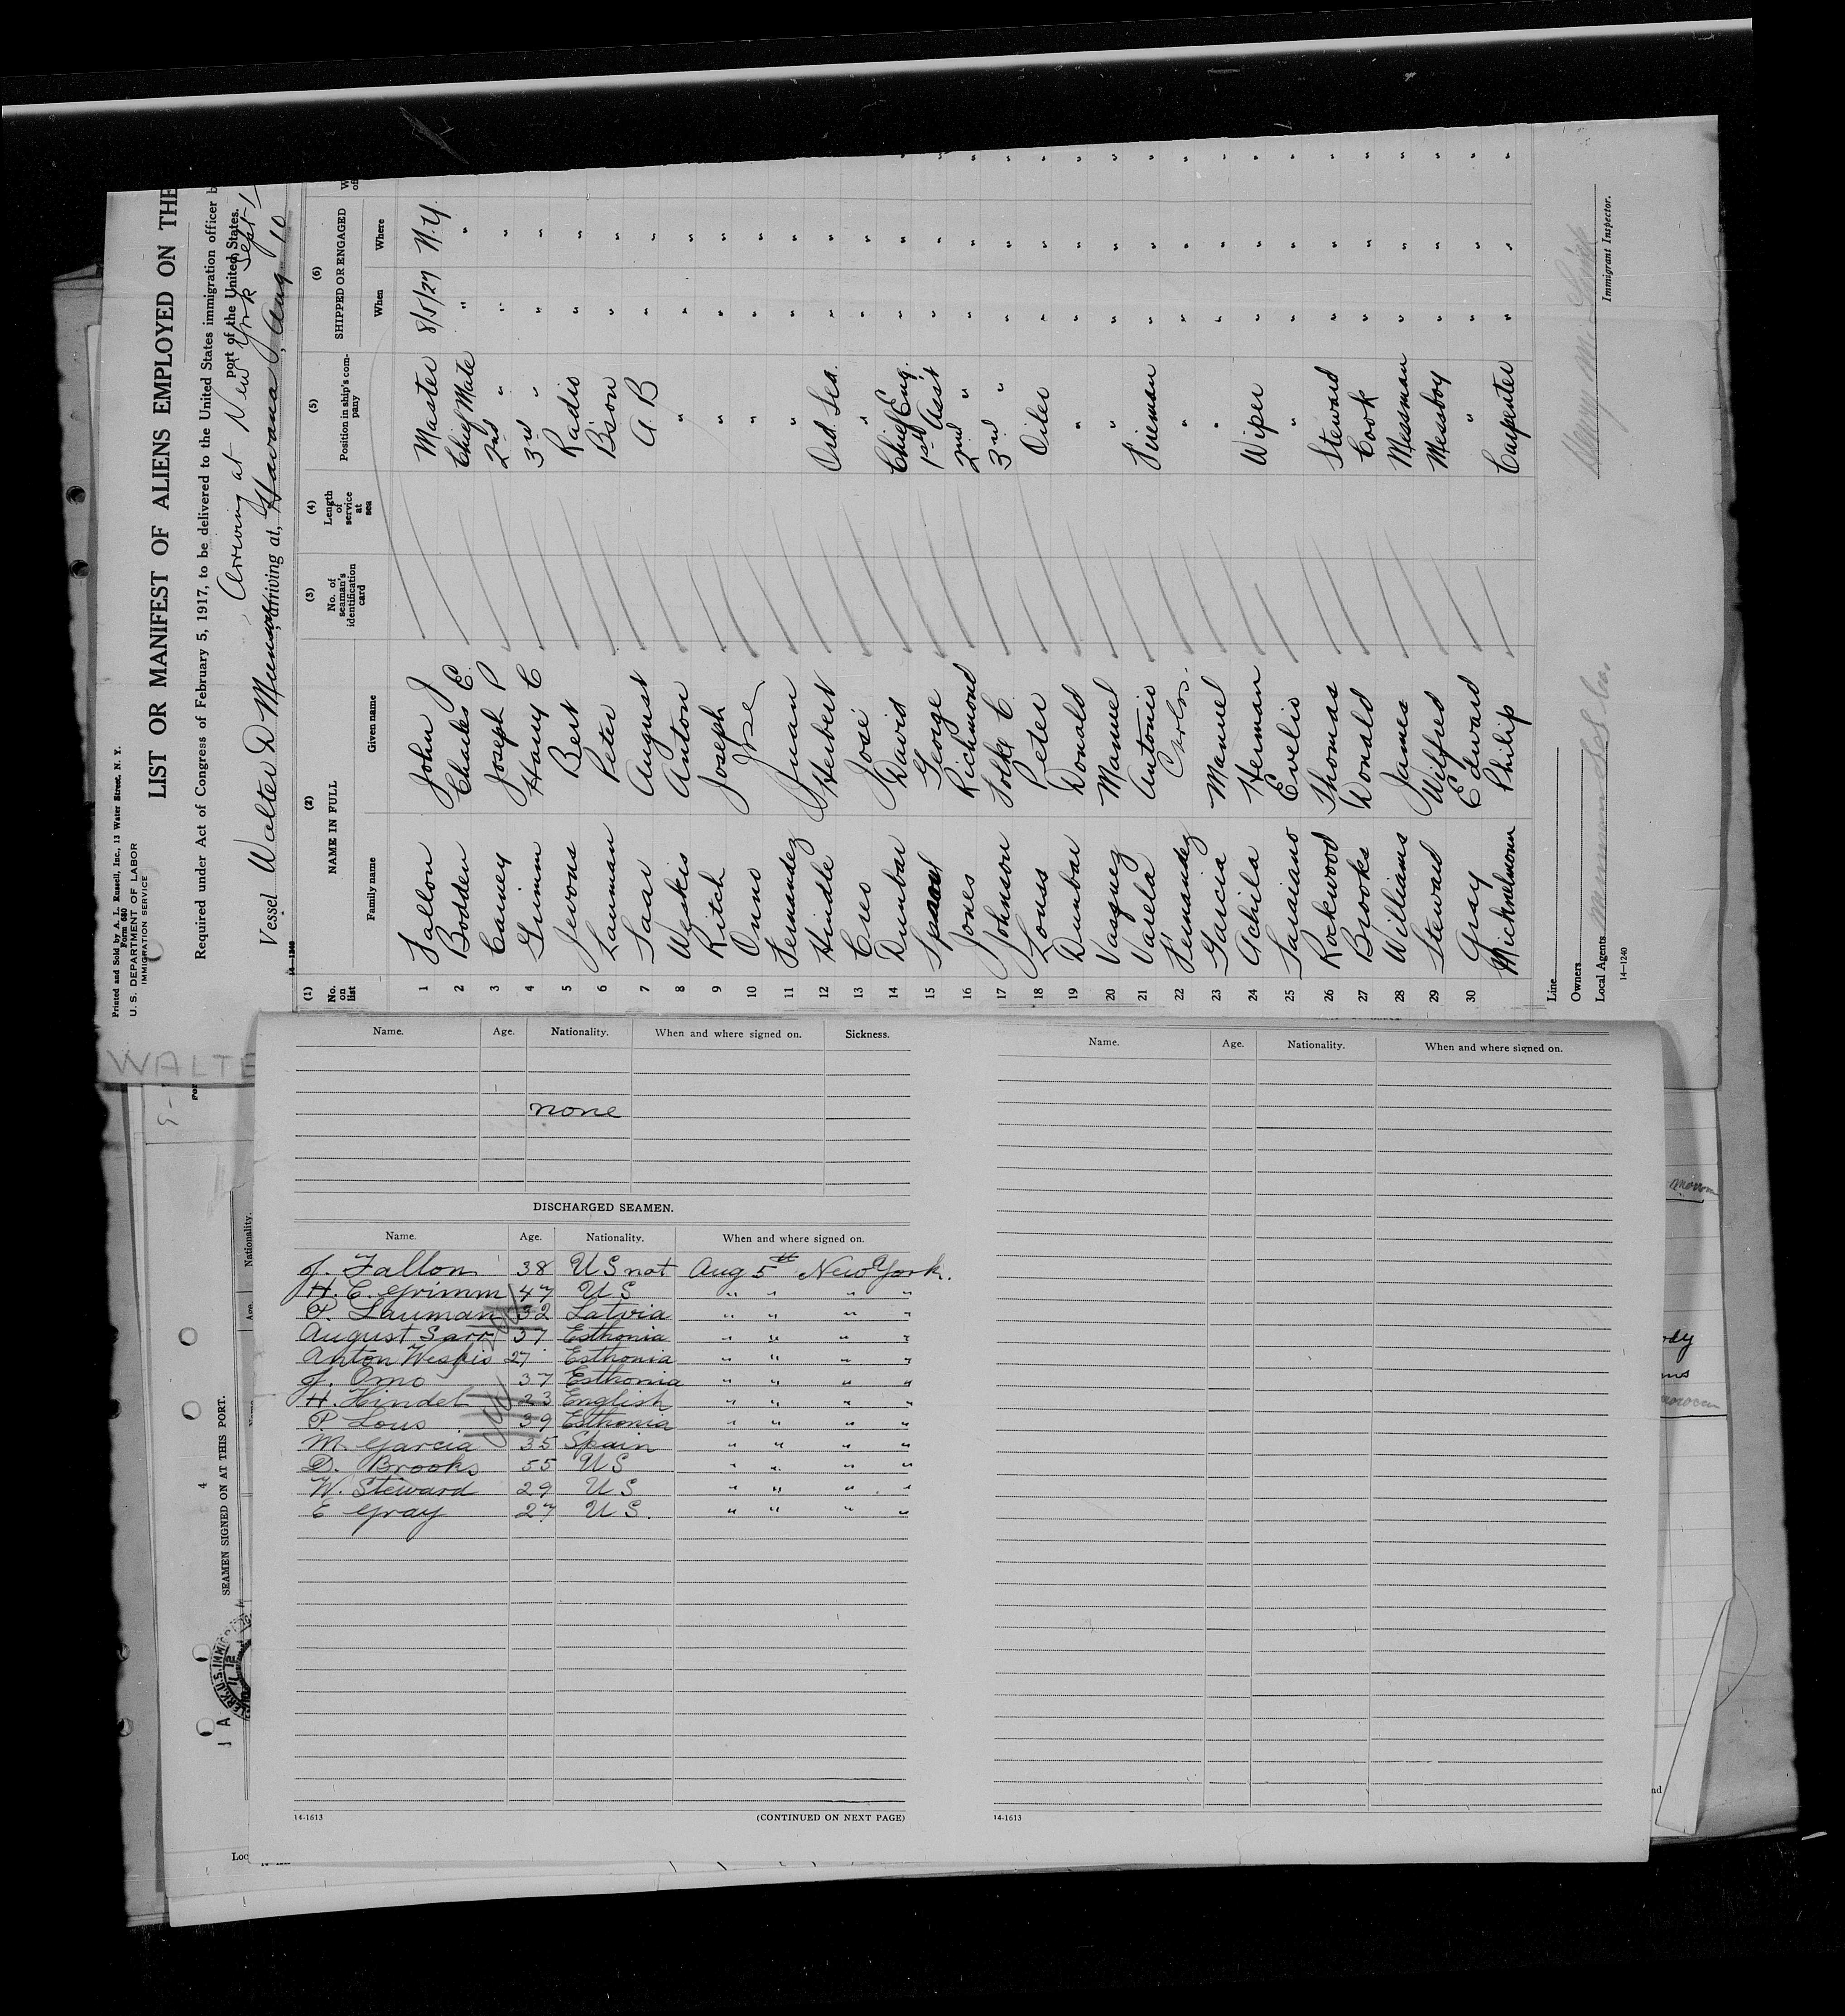 Printed and Sold by A. L. Russell, Inc., 13 Water Street, N. Y.
Form 680
U. S. DEPARTMENT OF LABOR
IMMIGRATION SERVICE
LIST OR MANIFEST OF ALIENS EMPLOYED ON THE
Required under Act of Congress of February 5, 1917, to be delivered to the United States immigration officer b
port of the United States.
Arriving at New York Sept 1
Vessel Walter D Munson, arriving at, Havana, Aug 10
14-1240
(1) (2) (3) (4) (5) (6)
No. on list NAME IN FULL No. of seaman's identification card Length of service at sea Position in ship's company SHIPPED OR ENGAGED W
Family name Given name When Where of
1 Fallon John J Master 8/5/27 N.Y.
2 Bodden Charles E. Chief Mate " "
3 Cainey Joseph P 2nd " " "
4 Grimm Harry C 3rd " " "
5 Jevons Bert Radio " "
6 Lauman Peter Bison " "
7 Saar August A B " "
8 Weskis Anton " " "
9 Ritch Joseph " " "
10 Omno Jose " " "
11 Fernandez Juan " " "
12 Hindle Herbert Ord. Sea. " "
13 Cres José " " "
14 Dunbar David Chief Eng. " " "
15 George 1st Ass't " " "
16 Jones Richmond 2nd " " " "
17 Johnson Folke C. 3rd " " " "
18 Louss Peter Oiler " " "
19 Dunbar Donald " " " "
20 Vasquez Manuel " " " "
21 Varela Antonio Fireman " " "
22 Fernandez Carlos " " " "
23 Garcia Manuel " " " "
24 Achila Herman Wiper " " "
25 Saraiano Evelio " " " "
26 Rockwood Thomas Steward " " "
27 Brooks Donald Cook " " "
28 Williams James Messman " " "
29 Steward Wilfred Messboy " " "
30 Gray Edward " " " "
Philip Carpenter " " "
Line
Owners
Local Agents Munson S S Co.
14-1240
Immigrant Inspector.
WALTE
Name. Age. Nationality. When and where signed on. Sickness.
none
DISCHARGED SEAMEN.
Name. Age. Nationality. When and where signed on.
J. Fallon 38 US nat Aug 5th New York.
H. E. Grimm 47 U S " " " "
P. Lauman 32 Latvia " " " "
August Sarr 37 Esthonia " " " "
Anton Weskis 27 Esthonia " " " "
J. Omo 37 Esthonia " " " "
H. Hindel 23 English " " " "
P. Lous 39 Esthonia " " " "
M. Garcia 35 Spain " " " "
D. Brooks 55 U S " " " "
W. Steward 29 U S " " " "
E Gray 27 U S. " " " "
14-1613 (CONTINUED ON NEXT PAGE)
Name. Age. Nationality. When and where signed on.
14-1613
4
SEAMEN SIGNED ON AT THIS PORT.
Name Age. Nationality.
Loc
ody
nd